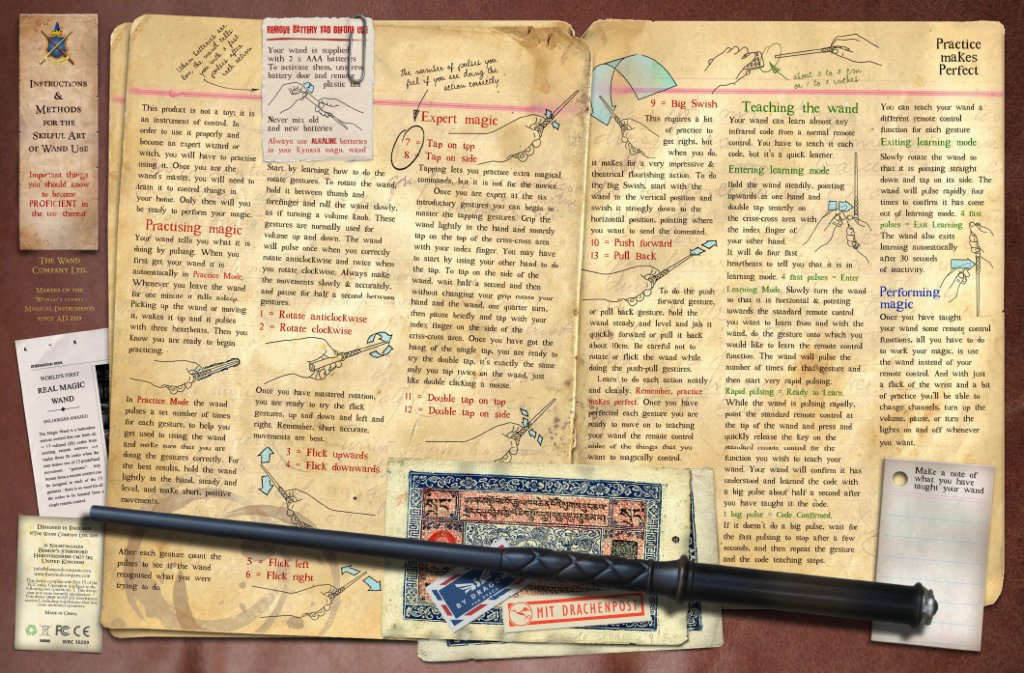 INSTRUCTIONS
&
METHODS
FOR THE
SKILFUL ART
OF WAND USE
Important things
you should know
to become
PROFICIENT in
the use thereof
THE WAND
COMPANY LTD.
MAKERS OF THE
WORLD'S FINEST
MAGICAL INSTRUMENTS
SINCE AD 2009
WORLD'S FIRST
REAL MAGIC
WAND
ONLOOKERS AMAZED
DESIGNED IN ENGLAND
©THE WAND COMPANY LTD. 2009
BISHOP'S STORTFORD
HERTFORDSHIRE CM23 5LQ
UNITED KINGDOM
info@thewandcompany.com
www.thewandcompany.com
MADE IN CHINA
FC CE
WEC 10209
When batteries are
low, the wand tells
you with 5 fast
pulses after
each action
This product is not a toy; it is
an instrument of control. In
order to use it properly and
become an expert wizard or
witch, you will have to practise
using it. Once you are the
wand's master, you will need to
train it to control things in
your home. Only then will you
be ready to perform your magic.
Practising magic
Your wand tells you what it is
doing by pulsing. When you
first get your wand it is
automatically in Practice Mode.
Whenever you leave the wand
for one minute it falls asleep.
Picking up the wand or moving
it, wakes it up and it pulses
with three heartbeats. Then you
Know you are ready to begin
practicing.
In Practice Mode the wand
pulses a set number of times
for each gesture, to help you
get used to using the wand
and make sure that you are
doing the gestures correctly. For
the best results, hold the wand
lightly in the hand, steady and
level, and make short, positive
movements.
After each gesture count the
pulses to see if the wand
recognised what you were
trying to do.
REMOVE BATTERY TAB BEFORE USE
Your wand is supplied
with 2 x AAA batteries
To activate them, unscrew
battery door and remove
plastic tab
Never mix old
and new batteries
Always use ALKALINE batteries
in your Kymera magic wand
Start by learning how to do the
rotate gestures. To rotate the wand,
hold it between thumb and
forefinger and roll the wand slowly,
as if turning a volume knob. These
gestures are normally used for
volume up and down. The wand
will pulse once when you correctly
rotate anticlockwise and twice when
you rotate clockwise. Always make
the movements slowly & accurately,
and pause for half a second between
gestures.
1 = Rotate anticlockwise
2 = Rotate clockwise
Once you have mastered rotation,
you are ready to try the flick
gestures, up and down and left and
right. Remember, short accurate,
movements are best.
3 = Flick upwards
4 = Flick downwards
5 = Flick left
6 = Flick right
The number of pulses you
feel if you are doing the
action correctly
Expert magic
7 = Tap on top
8 = Tap on side
Tapping lets you practice extra magical
commands, but it is not for the novice.
Once you are expert at the six
introductory gestures you can begin to
master the tapping gestures. Grip the
wand lightly in the hand and smartly
tap on the top of the criss-cross area
with your index finger. You may have
to start by using your other hand to do
the tap. To tap on the side of the
wand, wait half a second and then
without changing your grip rotate your
hand and the wand, one quarter turn,
then pause briefly and tap with your
index finger on the side of the
criss-cross area. Once you have got the
hang of the single tap, you are ready to
try the double tap, it's exactly the same
only you tap twice on the wand, just
like double clicking a mouse.
11 = Double tap on top
12 = Double tap on side
BY DRAGON
MIT DRACHENPOST
9 = Big Swish
This requires a bit
of practice to
get right, but
when you do,
it makes for a very impressive &
theatrical flourishing action. To do
the Big Swish, start with the
wand in the vertical position and
swish it strongly down to the
horizontal position, pointing where
you want to send the command.
10 = Push forward
13 = Pull Back
To do the push
forward gesture,
or pull back gesture, hold the
wand steady and level and jab it
quickly forward or pull it back
about 10cm. Be careful not to
rotate or flick the wand while
doing the push-pull gestures.
Learn to do each action neatly
and cleanly. Remember, practice
makes perfect. Once you have
perfected each gesture you are
ready to move on to teaching
your wand the remote control
codes of the things that you
want to magically control.
about 2 to 3 cm
or 1 to 2 inches
Teaching the wand
Your wand can learn almost any
infrared code from a normal remote
control. You have to teach it each
code, but it's a quick learner.
Entering learning mode
Hold the wand steadily, pointing
upwards in one hand and
double tap smartly on
the criss-cross area with
the index finger of
your other hand.
It will do four fast
heartbeats to tell you that it is in
learning mode. 4 fast pulses = Enter
Learning Mode. Slowly turn the wand
so that it is horizontal & pointing
towards the standard remote control
you want to learn from and with the
wand, do the gesture onto which you
would like to learn the remote control
function. The wand will pulse the
number of times for that gesture and
then start very rapid pulsing.
Rapid pulsing = Ready to Learn.
While the wand is pulsing rapidly,
point the standard remote control at
the tip of the wand and press and
quickly release the Key on the
standard remote control for the
function you wish to teach your
wand. Your wand will confirm it has
understood and learned the code with
a big pulse about half a second after
you have taught it the code.
1 big pulse = Code Confirmed.
If it doesn't do a big pulse, wait for
the fast pulsing to stop after a few
seconds, and then repeat the gesture
and the code teaching steps.
Practice
makes
Perfect
You can teach your wand a
different remote control
function for each gesture
Exiting learning mode
Slowly rotate the wand so
that it is pointing straight
down and tap on its side. The
wand will pulse rapidly four
times to confirm it has come
out of learning mode. 4 fast
pulses = Exit Learning
The wand also exits
learning automatically
after 30 seconds
of inactivity.
Performing
magic
Once you have taught
your wand some remote control
functions, all you have to do
to work your magic, is use the
wand instead of your remote
control. And with just
a flick of the wrist and a bit
of practice you'll be able to
change channels, turn up the
volume, pause, or turn the
lights on and off whenever
you want.
Make a note of
what you have
taught your wand